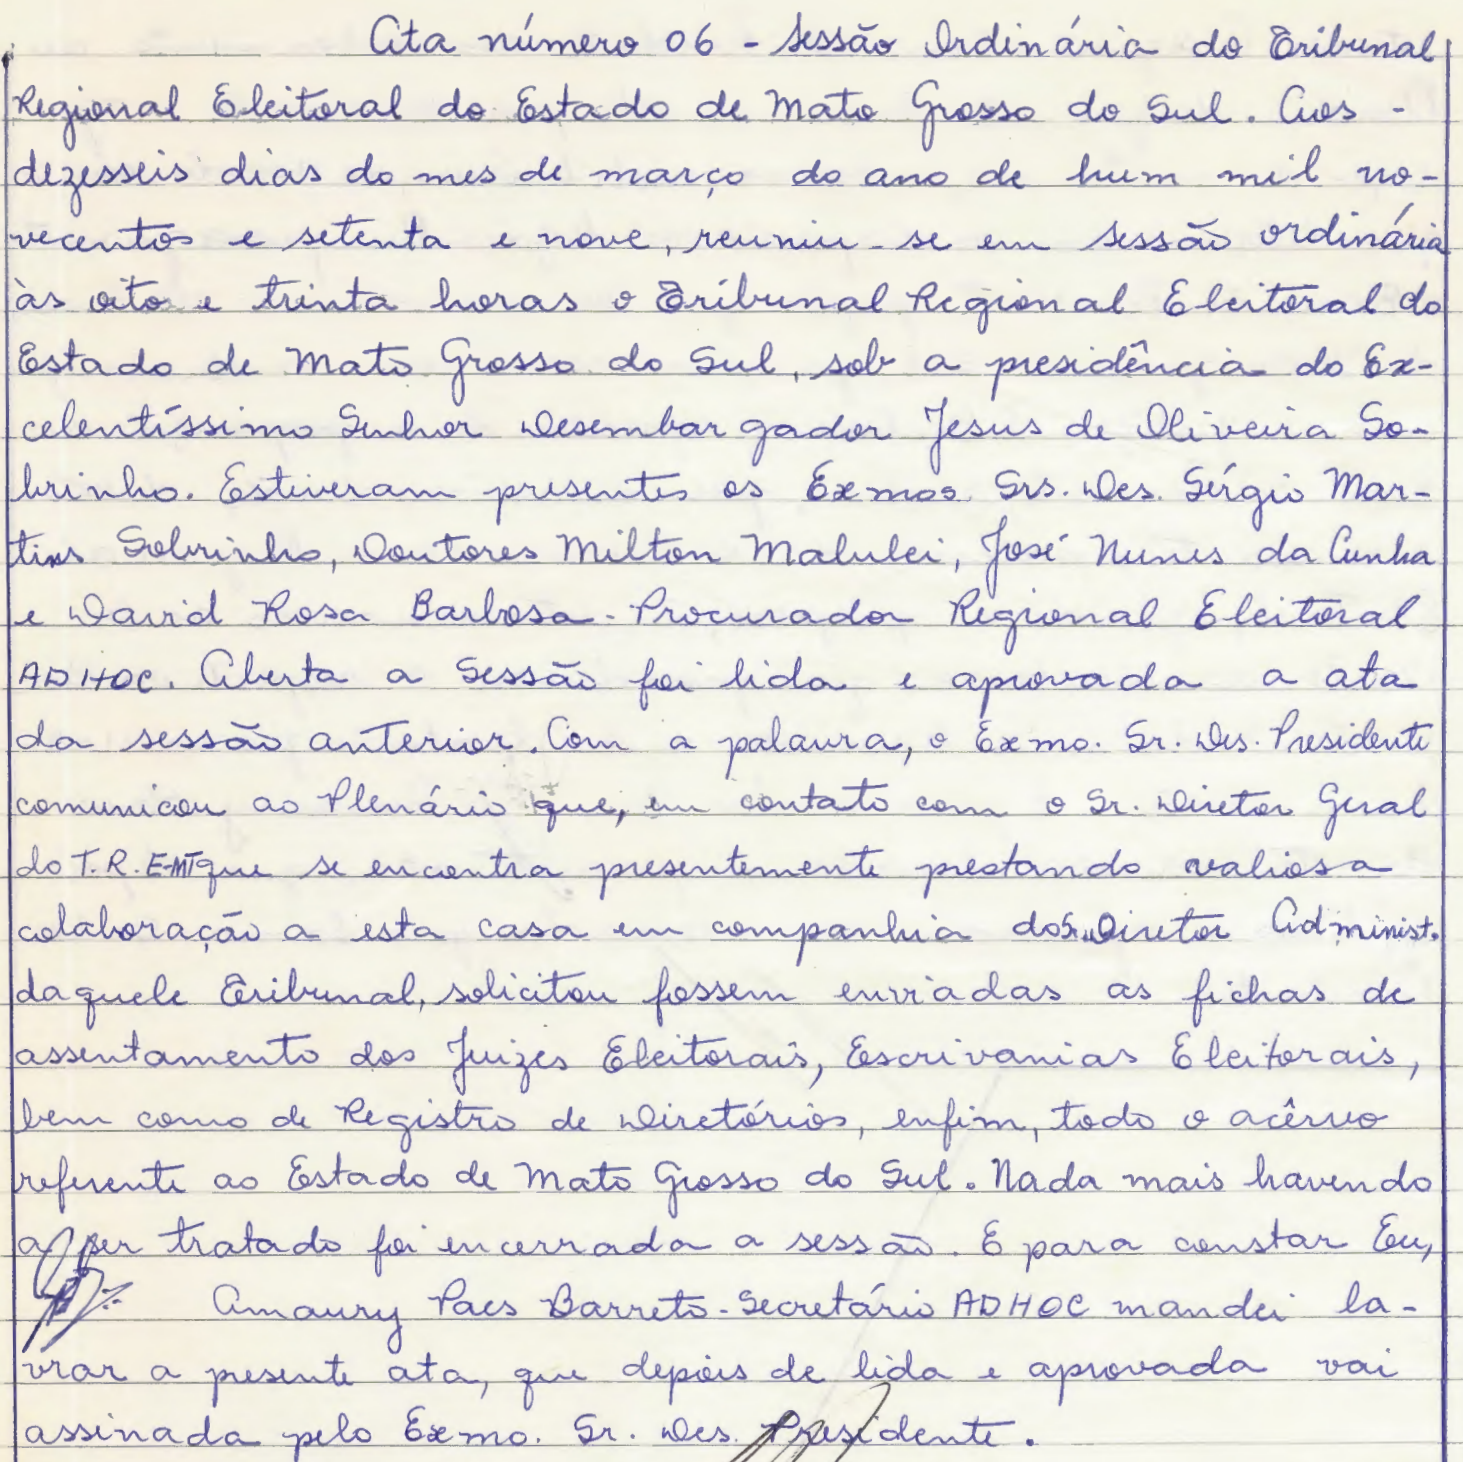 Ata número 06 - Sessão Ordinária do Tribunal
Regional Eleitoral do Estado de Mato Grosso do Sul. Aos -
dezesseis dias do mes de março do ano de hum mil no-
vecentos e setenta e nove, reuniu-se em sessão ordinária
às oito e trinta horas o Tribunal Regional Eleitoral do
Estado de Mato Grosso do Sul, sob a presidência do Ex-
celentíssimo Senhor Desembargador Jesus de Oliveira So-
brinho. Estiveram presentes os Exmos. Srs. Des. Sérgio Mar-
tins Sobrinho, Doutores Milton Malulei, José Nunes da Cunha
e David Rosa Barbosa - Procurador Regional Eleitoral
AD HOC. Aberta a Sessão foi lida e aprovada a ata
da sessão anterior. Com a palavra, o Exmo. Sr. Des. Presidente
comunicou ao Plenário que, em contato com o Sr. Diretor Geral
do T.R.E-MT que se encontra presentemente prestando valiosa
colaboração a esta casa em companhia do Sr. Diretor Administ.
daquele Tribunal, solicitou fossem enviadas as fichas de
assentamento dos Juizes Eleitorais, Escrivanias Eleitorais,
bem como de Registro de Diretórios, enfim, todo o acêrvo
referente ao Estado de Mato Grosso do Sul. Nada mais havendo
a ser tratado foi encerrada a sessão. E para constar Eu,
Amaury Paes Barreto - Secretário AD HOC mandei la-
vrar a presente ata, que depois de lida e aprovada vai
assinada pelo Exmo. Sr. Des. Presidente.